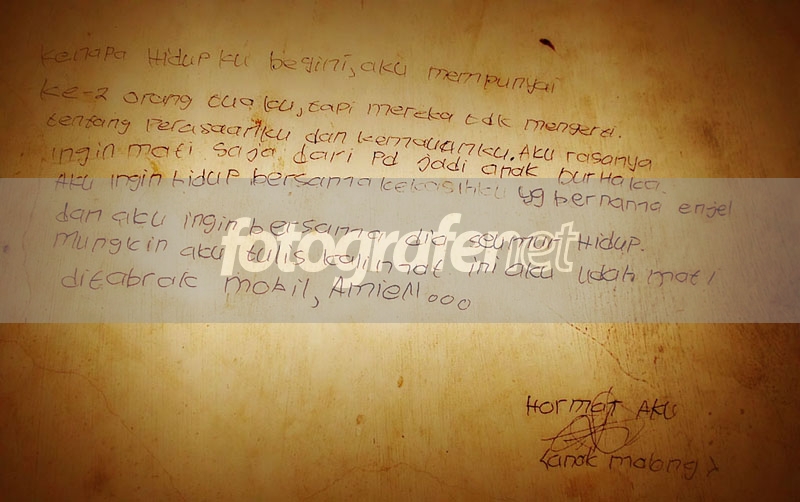 kenapa Hidupku begini, aku mempunyai
ke-2 orang tuaku, tapi mereka tdk mengerti.
tentang perasaanku dan kemauanku. Aku rasanya
ingin mati saja dari pd jadi anak durhaka.
Aku ingin hidup bersama kekasihku yg bernama enjel
dan aku ingin bersama dia seumur Hidup.
Mungkin aku tulis kalimat ini aku udah mati
ditabrak mobil, Amien...
fotografernet
Hormat AKU
(anak malang)